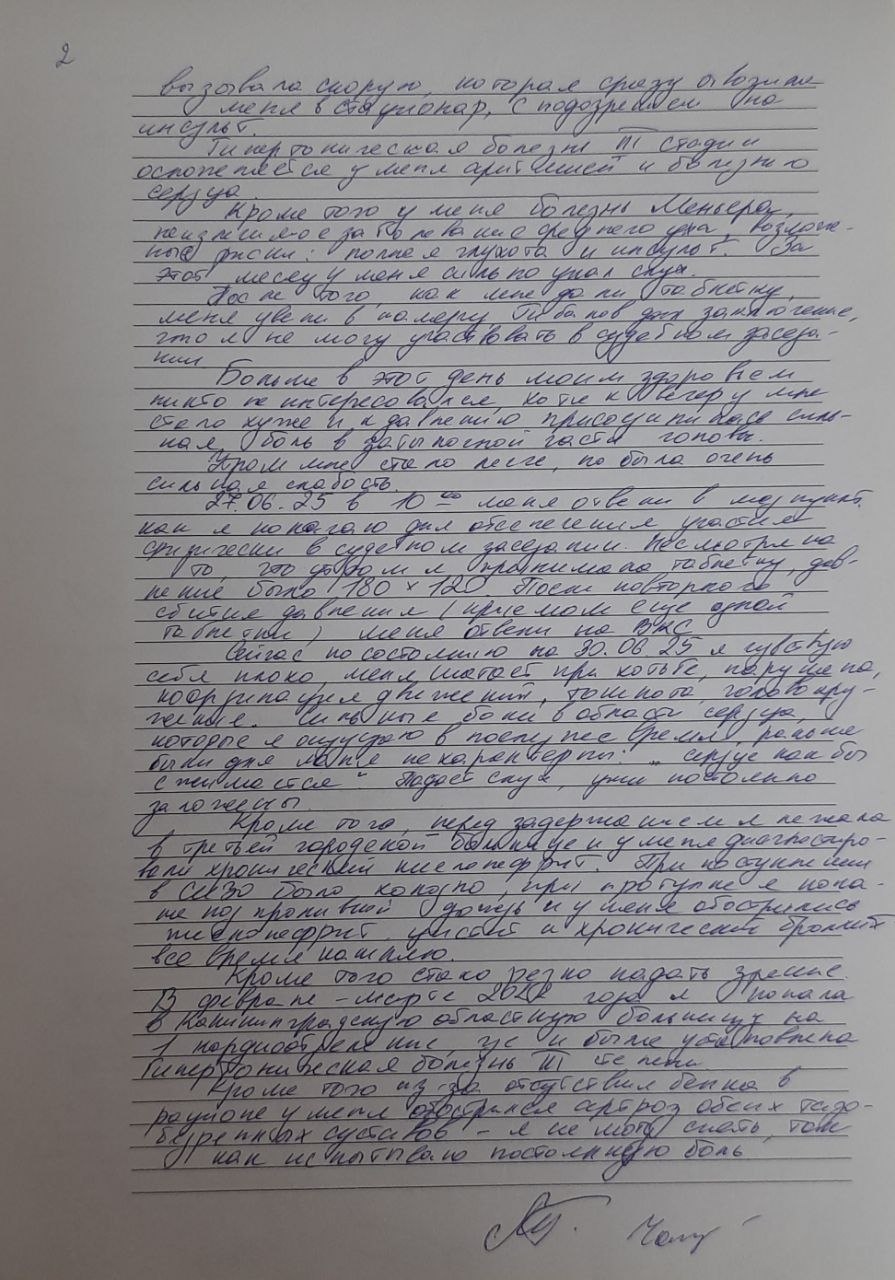 2
вызывала скорую, которая сразу отвозила
меня в стационар, с подозрением на
инсульт.
Гипертоническая болезнь III стадии
осложняется у меня аритмией и болезнью
сердца.
Кроме того у меня болезнь Меньера,
неизлечимое заболевание среднего уха, возмож-
ные риски: полная глухота и инсульт. За
этот месяц у меня сильно упал слух.
После того, как мне дали таблетку,
меня увели в камеру. Гибалов дал заключение,
что я не могу участвовать в судебном заседа-
нии
Больше в этот день моим здоровьем
никто не интересовался, хотя к вечеру мне
стало хуже и к давлению присоединилась силь-
ная боль в затылочной части головы.
Утром мне стало легче, но была очень
сильная слабость.
27.06.25 в 10 00 меня отвели в медпункт.
как я полагаю для обеспечения участия
физически в судебном заседании. Несмотря на
то, что утром я принимала таблетку, дав-
ление было 180 × 120. После повторного
сбития давления (приемом еще одной
таблетки) меня отвели на ВКС
Сейчас по состоянию на 30.06.25 я чувствую
себя плохо, меня шатает при ходьбе, нарушена,
координация движений, тошнота, головокру-
жение. Сильные боли в области сердца,
которые я ощущаю в последнее время, раньше
были для меня не характерны: „сердце как бы
сжимается". Падает слух, уши постоянно
заложены.
Кроме того, перед задержанием я лежала
в третьей городской больнице и у меня диагностиро-
вали хронический пиелонефрит. При поступлении
в СИЗО было холодно, при прогулке я попа-
ла под проливной дождь и у меня обострились
пиелонефрит, цистит и хронический бронхит
все время кашляю.
Кроме того стало резко падать зрение.
В феврале-марте года я попала
в Калининградскую областную больницу на
1 кардиоотделение, где и была установлена
Гипертоническая болезнь III степени.
Кроме того из-за отсутствия белка в
рационе у меня обострился артроз обеих тазо-
бедренных суставов - я не могу спать, так
как испытываю постоянную боль